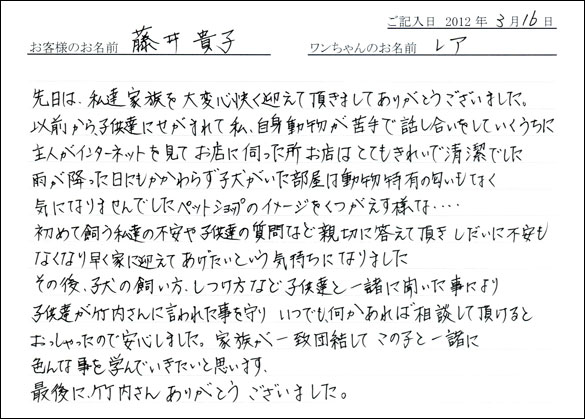 ご記入日 2012年 3月16日
お客様のお名前 藤井貴子 ワンちゃんのお名前 レア
先日は、私達家族を大変心快く迎えて頂きましてありがとうございました。
以前から子供達にせがまれて私、自身動物が苦手で話し合いをしていくうちに
主人がインターネットを見てお店に伺った所お店はとてもきれいで清潔でした
雨が降った日にもかかわらず子犬がいた部屋は動物特有の匂いもなく
気になりませんでしたペットショップのイメージをくつがえす様な・・・・
初めて飼う私達の不安や子供達の質問など親切に答えて頂きしだいに不安も
なくなり早く家に迎えてあげたいという気持ちになりました
その後、子犬の飼い方、しつけ方など子供達と一諸に聞いた事により
子供達が竹内さんに言われた事を守り いつでも何かあれば相談して頂けると
おっしゃったので安心しました。家族が一致団結してこの子と一諸に
色んな事を学んでいきたいと思います。
最後に、竹内さん ありがとうございました。